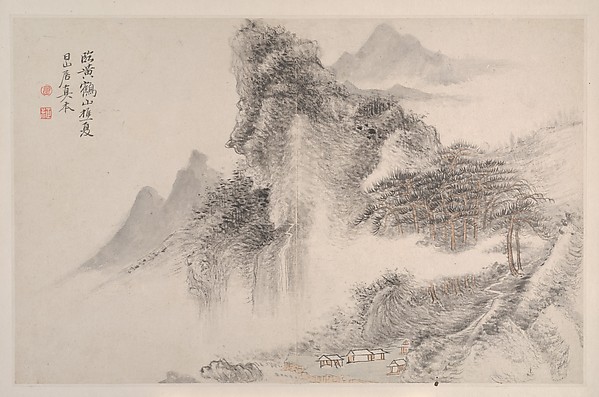 臨黃鶴山樵夏
日山居真本